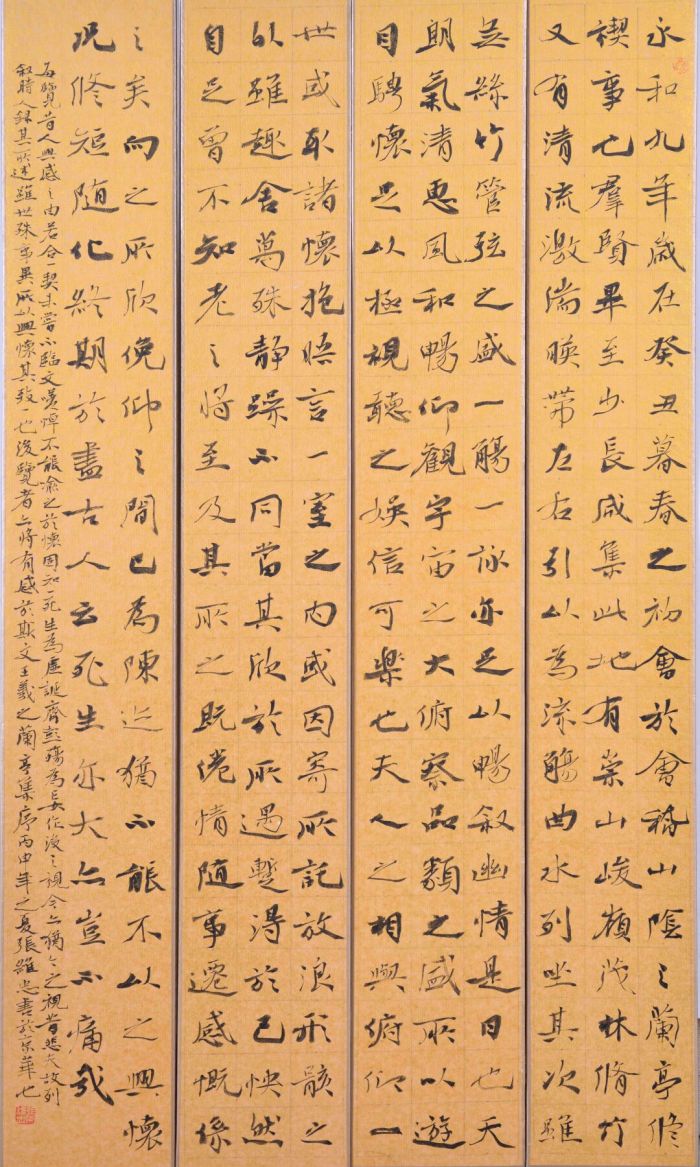 永和九年歲在癸丑暮春之初會於會稽山陰之蘭亭脩
禊事也羣賢畢至少長咸集此地有崇山峻領茂林脩竹
又有清流激湍暎帶左右引以為流觴曲水列坐其次雖
無絲竹管弦之盛一觴一詠亦足以暢叙幽情是日也天
朗氣清惠風和暢仰觀宇宙之大俯察品類之盛所以遊
目騁懷足以極視聽之娛信可樂也夫人之相與俯仰一
世或取諸懷抱悟言一室之內或因寄所託放浪形骸之
外雖趣舍萬殊靜躁不同當其欣於所遇暫得於己怏然
自足曾不知老之將至及其所之既倦情隨事遷感慨係
之矣向之所欣俛仰之間已為陳迹猶不能不以之興懷
況脩短隨化終期於盡古人云死生亦大矣豈不痛哉
每覽昔人興感之由若合一契未嘗不臨文嗟悼不能喻之於懷固知一死生為虛誕齊彭殤為妄作後之視今亦猶今之視昔悲夫故列
叙時人錄其所述雖世殊事異所以興懷其致一也後覽者亦將有感於斯文王羲之蘭亭集序丙申年之夏張書於京華也